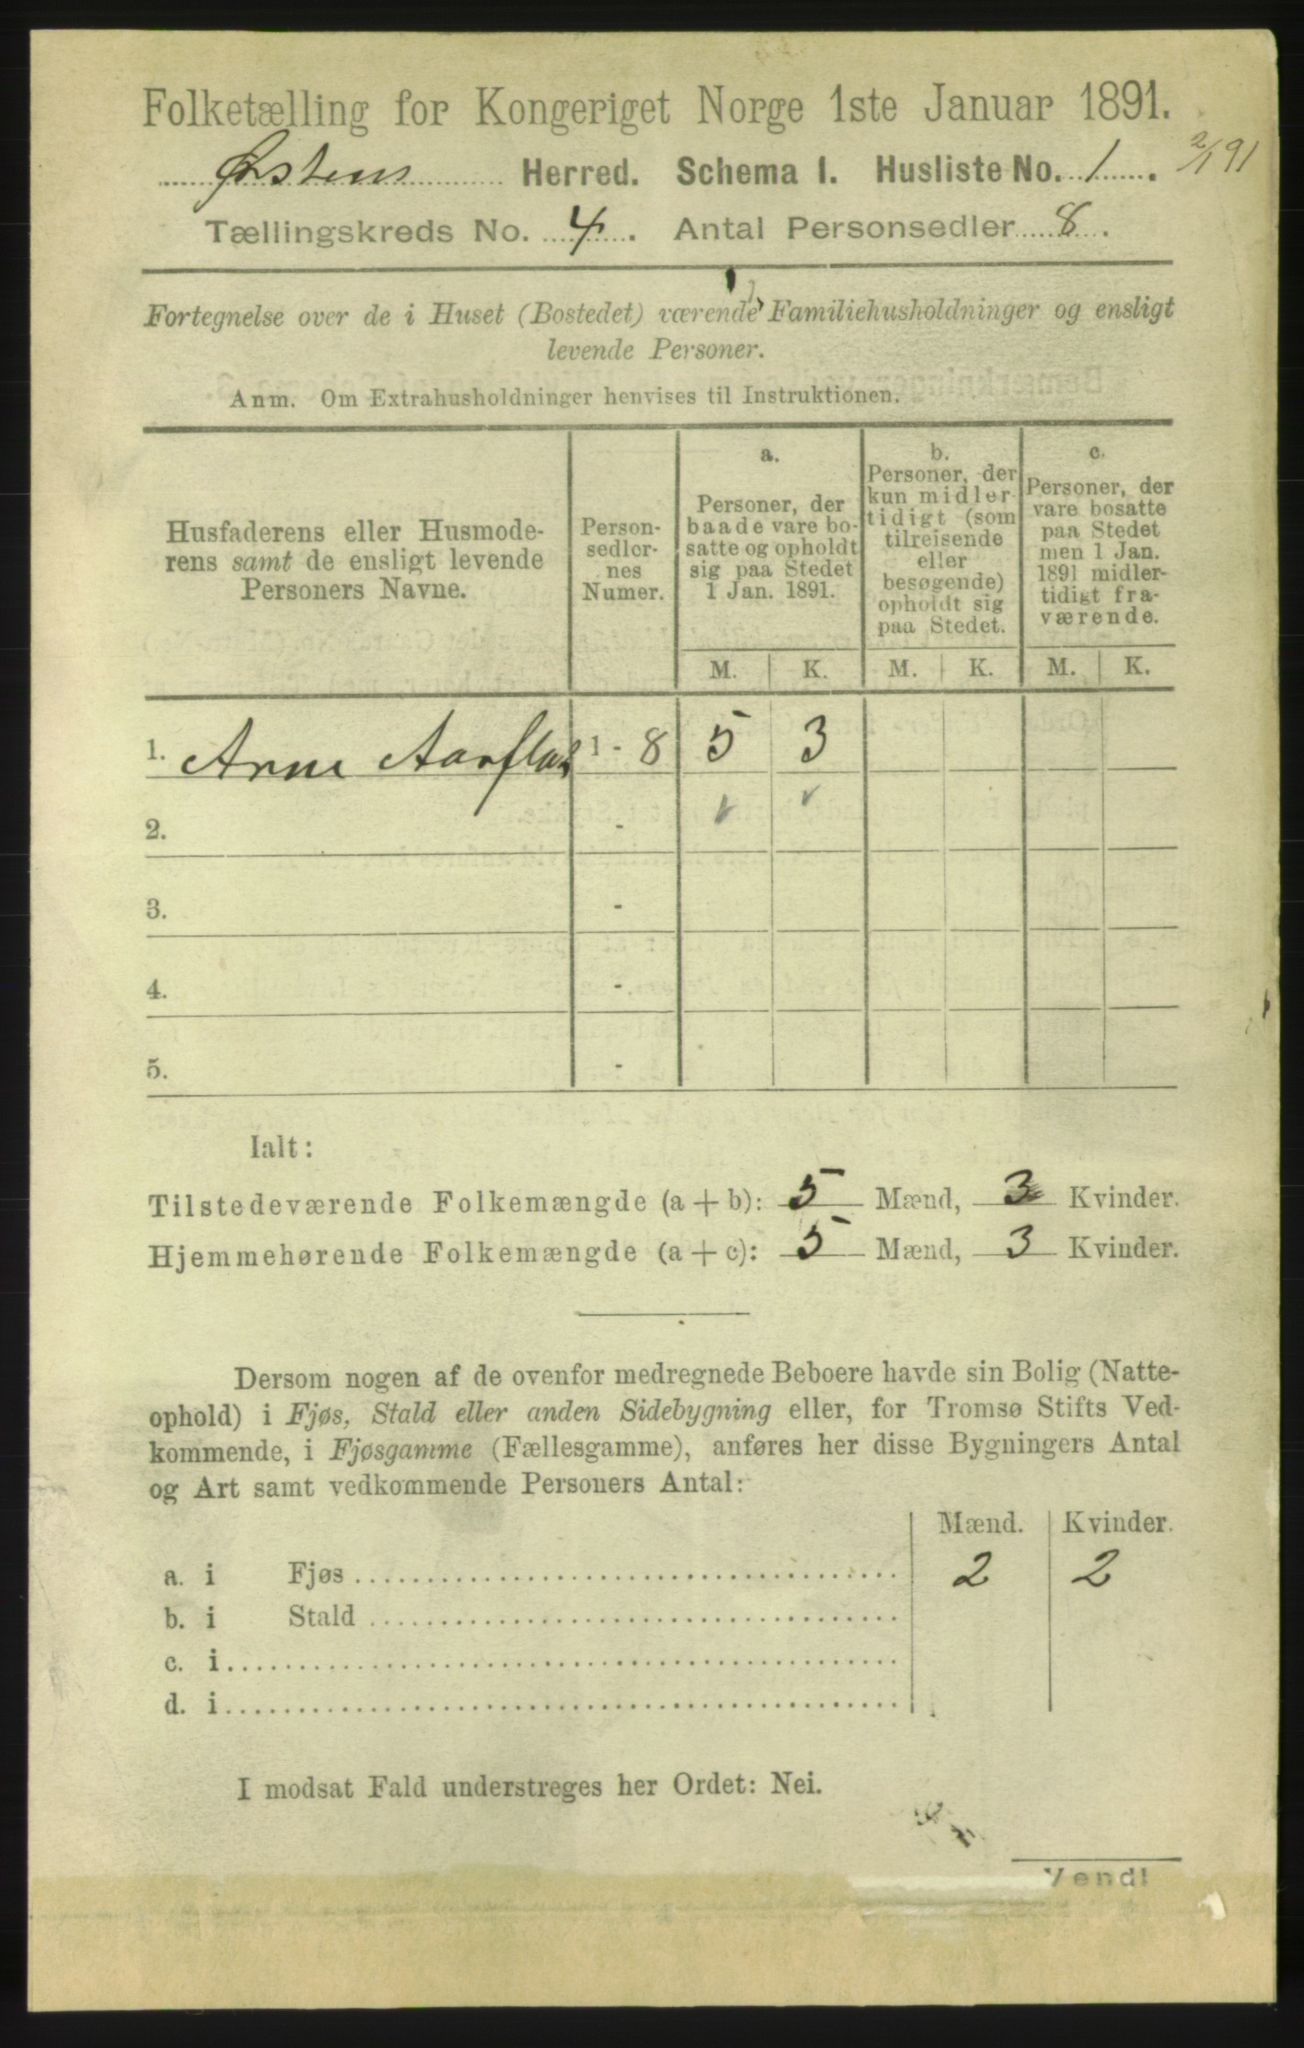 Folketælling for Kongeriget Norge 1ste Januar 1891.
Ørstens Herred. Schema I. Husliste No. 1. 2/1 91
Tællingskreds No. 4. Antal Personsedler 8.
Fortegnelse over de i Huset (Bostedet) værende Familiehusholdninger og ensligt
levende Personer.
Anm. Om Extrahusholdninger henvises til Instruktionen.
Husfaderens eller Husmode-
rens samt de ensligt levende
Personers Navne.
Person-
sedler-
nes
Numer.
a.
Personer, der
baade vare bo-
satte og opholdt
sig paa Stedet
1 Jan. 1891.
b.
Personer, der
kun midler-
tidigt (som
tilreisende
eller
besøgende)
opholdt sig
paa Stedet.
c.
Personer, der
vare bosatte
paa Stedet
men 1 Jan.
1891 midler-
tidigt fra-
værende.
M. K. M. K. M. K.
1. Arne Aarflot 1 - 8 5 3
2. -
3. -
4. -
5. -
Ialt:
Tilstedeværende Folkemængde (a + b): 5 Mænd, 3 Kvinder.
Hjemmehørende Folkemængde (a + c): 5 Mænd, 3 Kvinder.
Dersom nogen af de ovenfor medregnede Beboere havde sin Bolig (Natte-
ophold) i Fjøs, Stald eller anden Sidebygning eller, for Tromsø Stifts Ved-
kommende, i Fjøsgamme (Fællesgamme), anføres her disse Bygningers Antal
og Art samt vedkommende Personers Antal:
Mænd. Kvinder.
a. i Fjøs 2 2
b. i Stald
c. i
d. i
I modsat Fald understreges her Ordet: Nei.
Vend!